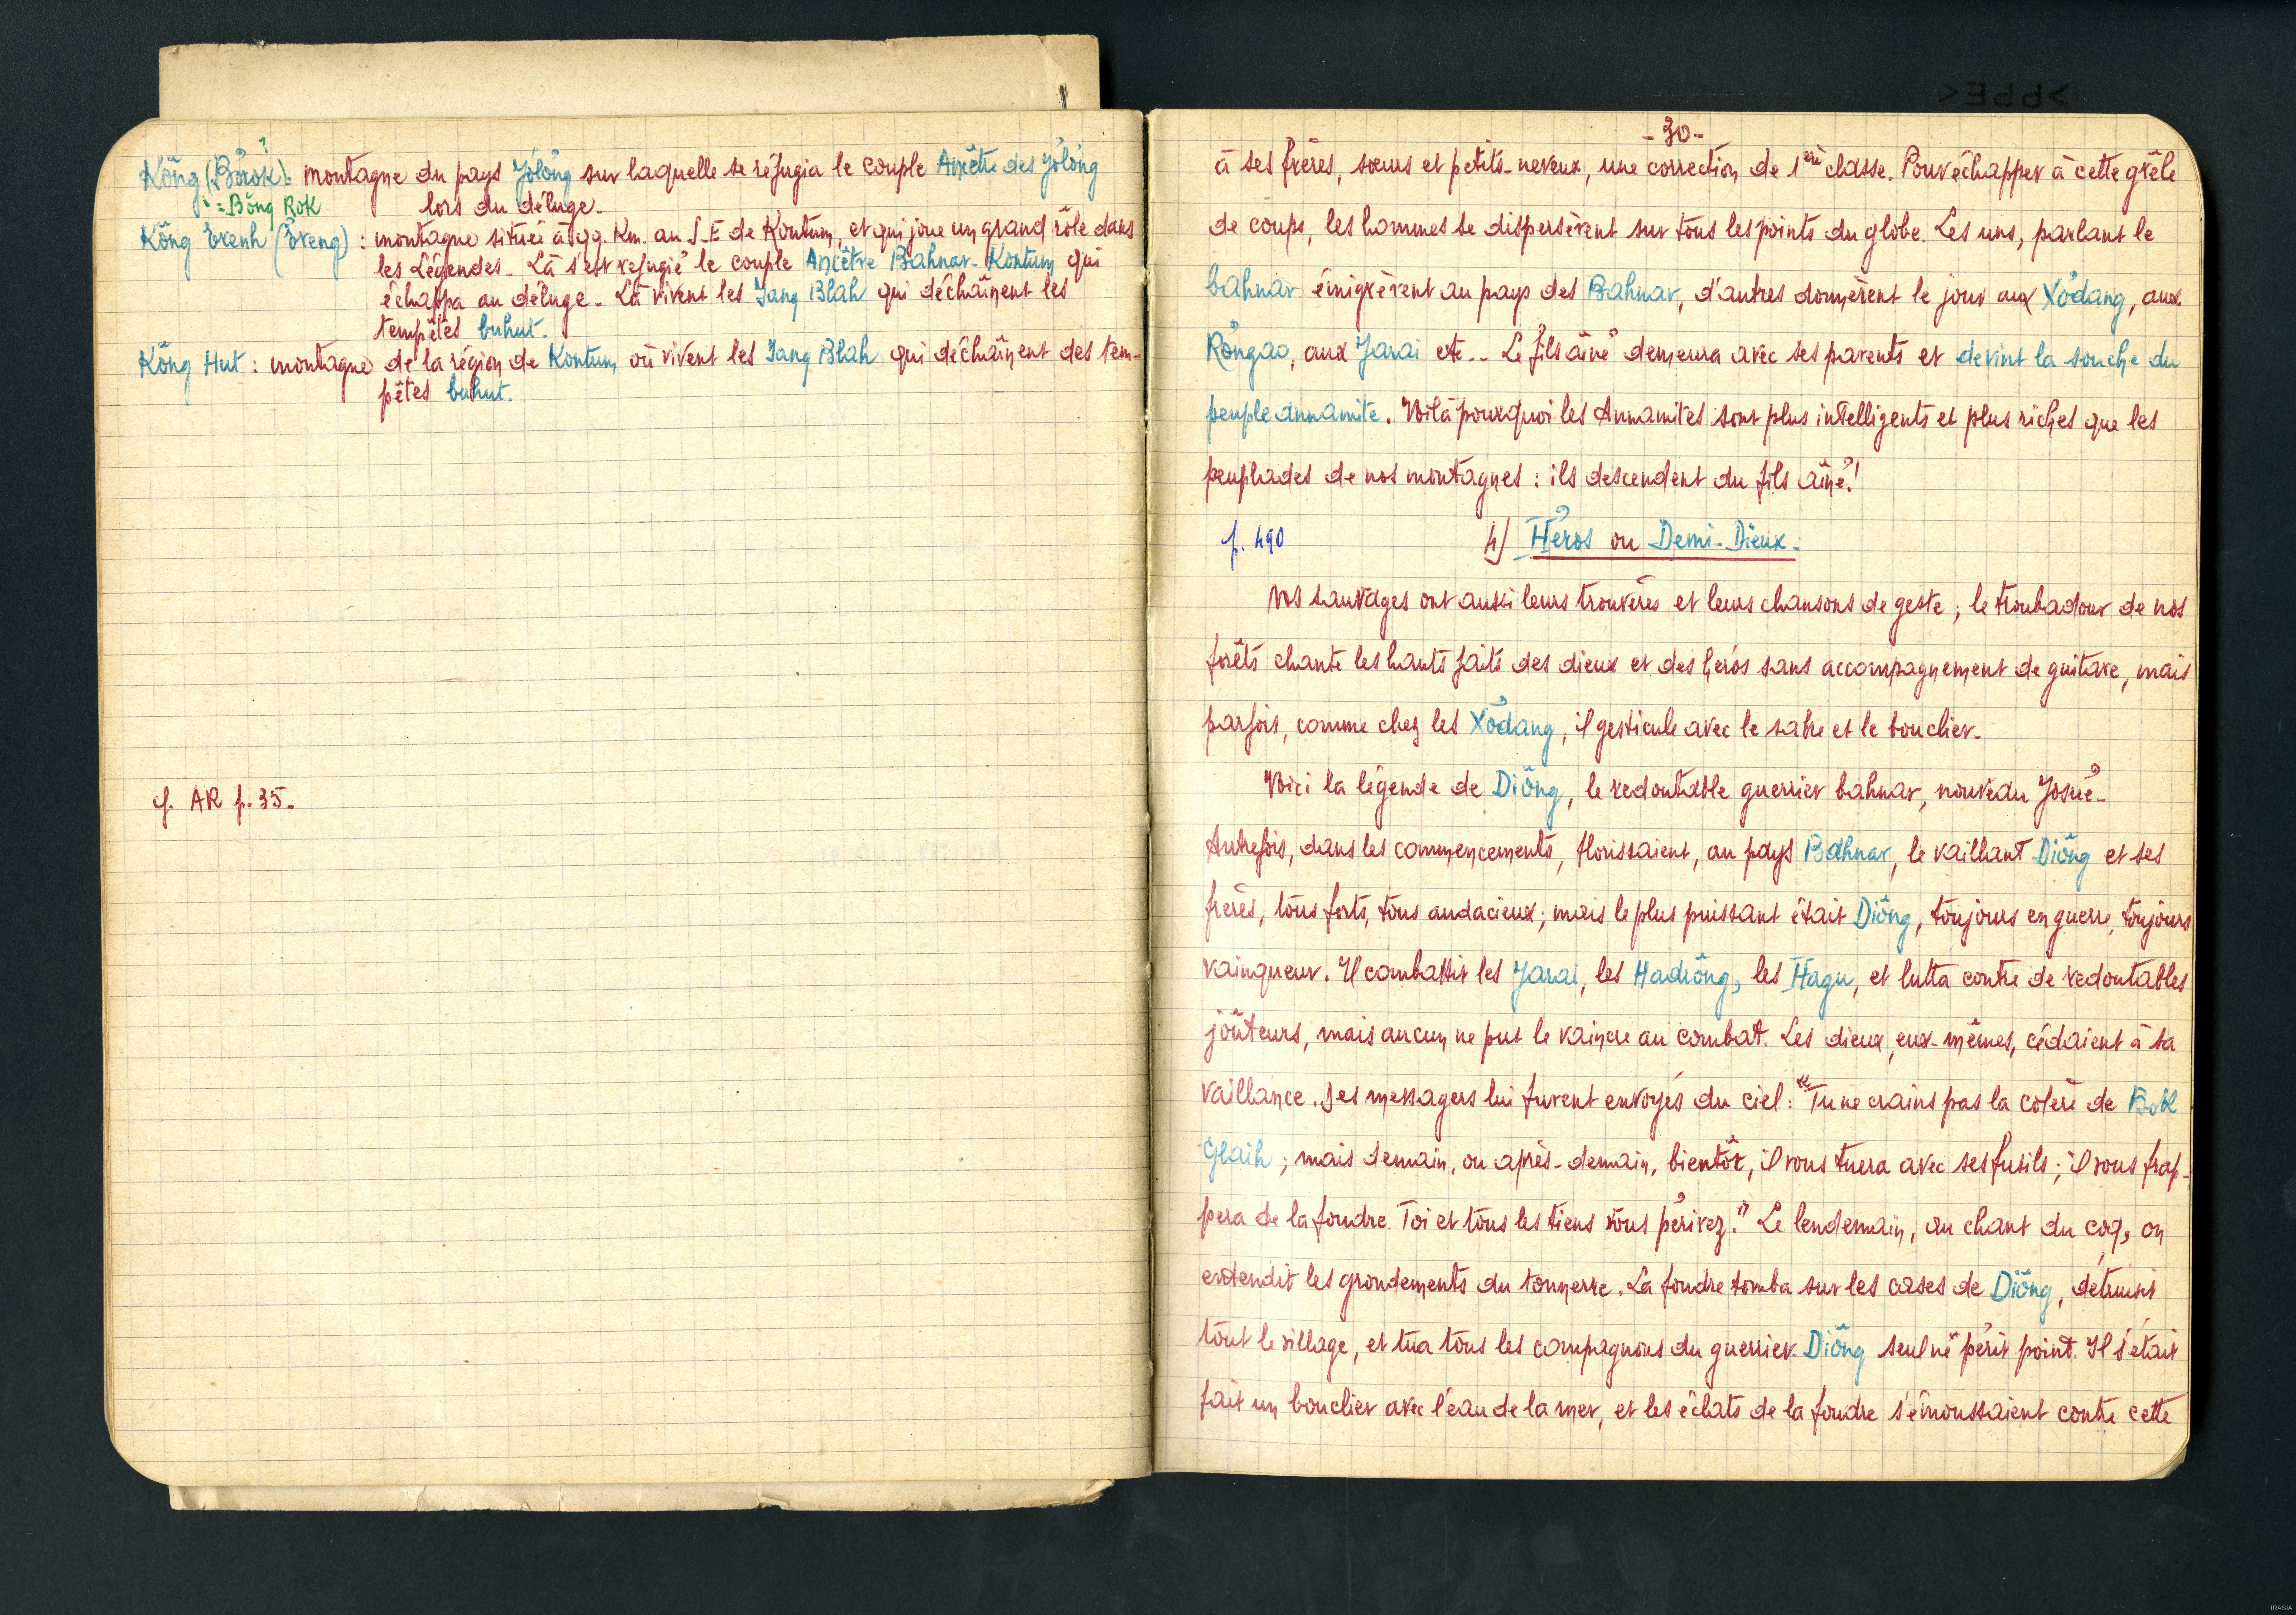 Kông (Bơrok) : montagne du pays Jơlơng sur laquelle se réfugia le couple Ancêtre des Jơlơng
?
= Bơng Rok
lors du déluge.
Kông Ơrenh (Ơreng) : montagne située à qq. Km. au S-E de Kontum, et qui joue un grand rôle dans
les Légendes. Là s'est réfugié le couple Ancêtre Bahnar-Kontum qui
échappa au déluge. Là vivent les Iang Blah qui déchaînent les
tempêtes buhut.
Kông Hut : montagne de la région de Kontum où vivent les Iang Blah qui déchaînent des tem-
pêtes buhut.
cf. AR p. 35.
- 30 -
à ses frères, sœurs et petits-neveux, une correction de 1ère classe. Pour échapper à cette grêle
de coups, les hommes se dispersèrent sur tous les points du globe. Les uns, parlant le
bahnar émigrèrent au pays des Bahnar, d'autres donnèrent le jour aux Xơdang, aux
Rơngao, aux Jarai etc... Le fils aîné demeura avec ses parents et devint la souche du
peuple annamite. Voilà pourquoi les Annamites sont plus intelligents et plus riches que les
peuplades de nos montagnes : ils descendent du fils aîné !
p. 490
4) Héros ou Demi-Dieux.
Nos sauvages ont aussi leurs trouvères et leurs chansons de geste ; le troubadour de nos
forêts chante les hauts faits des dieux et des héros sans accompagnement de guitare, mais
parfois, comme chez les Xơdang, il gesticule avec le sabre et le bouclier.
Voici la légende de Diông, le redoutable guerrier bahnar, nouveau Josué.
Autrefois, dans les commencements, florissaient, au pays Bahnar, le vaillant Diông et ses
frères, tous forts, tous audacieux ; mais le plus puissant était Diông, toujours en guerre, toujours
vainqueur. Il combattit les Jarai, les Hadrông, les Hagu, et lutta contre de redoutables
joûteurs, mais aucun ne put le vaincre au combat. Les dieux, eux-mêmes, cédaient à sa
vaillance. Des messagers lui furent envoyés du ciel : "Tu ne crains pas la colère de Bok
Glaih ; mais demain, ou après-demain, bientôt, il vous tuera avec ses fusils ; il vous frap-
pera de la foudre. Toi et tous les tiens vous périrez." Le lendemain, au chant du coq, on
entendit les grondements du tonnerre. La foudre tomba sur les cases de Diông, détruisit
tout le village, et tua tous les compagnons du guerrier. Diông seul ne périt point. Il s'était
fait un bouclier avec l'eau de la mer, et les éclats de la foudre s'émoussaient contre cette
IRASIA